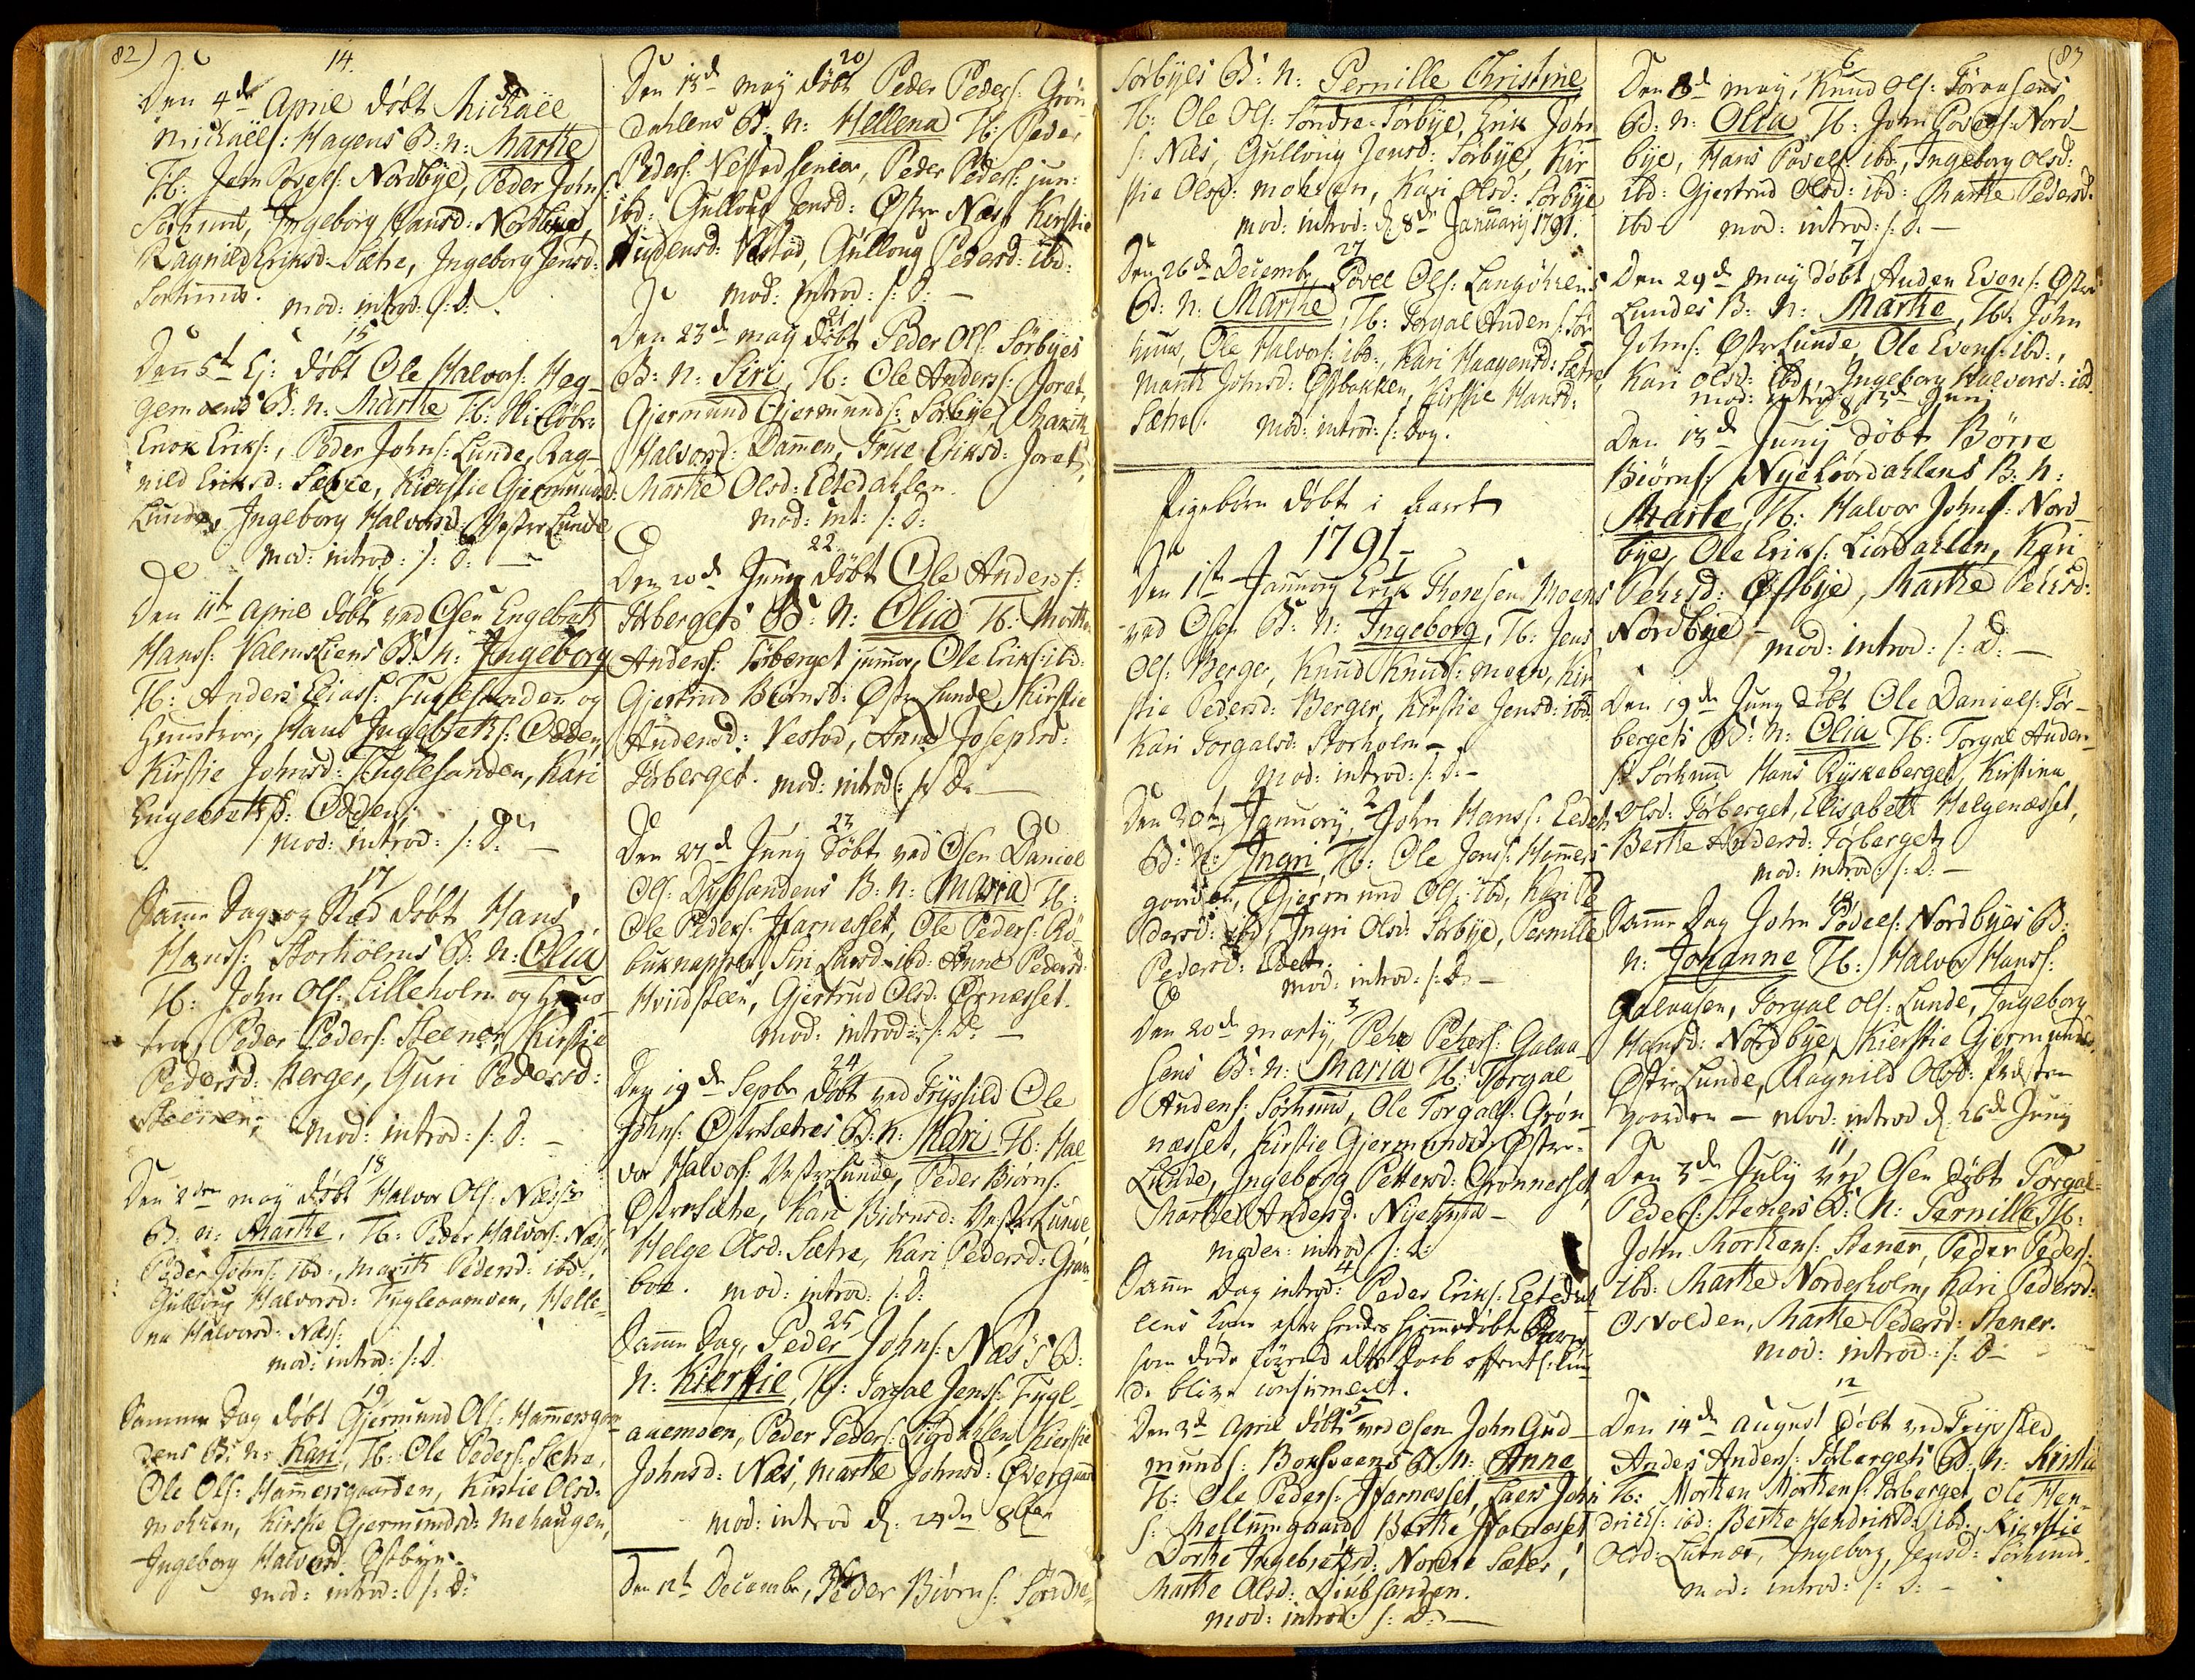 82)
14.
Den 4de April döbt Michaël
Michaëls: Hagens B: n: Marthe
Tb: Jem Povels: Nordbÿe, Peder Johns:
Sørhuus, Ingeborg Hansd: Nordbye,
Ragnild Eriksd: Sætre, Ingeborg Jensd:
Sørhuus. mod: introd: /: D:
15
Den 5te Ej: döbt Ole Halvors: Heg-
gemoens B: n: Marthe Tb:
Enok Eriks:, Peder Johns: Lunde, Rag-
nild Eriksd: Sætre, Kierstie Gjermundsd:
Lunde, Ingeborg Halvorsd: Vestre Lunde
mod: introd: /: D: —
16
Den 11te April döbt ved Osen Engebreth
Hanss: Valmsliens B: n: Ingeborg
Tb: Anders Eliass: Fuglesanden og
Hustroe, Hans Ingebreths: Odden,
Kirstie Johnsd: Fuglesanden, Kari
Engebrethsd: Odden;
mod: introd: /: D: —
17
Samme Dag og Sted döbt Hans
Hanss: Storholms B: n: Olia
Tb: John Ols: Lilleholm og Hus-
troe, Peder Peders: Steener, Kirstie
Pedersd: Berger, Guri Pedersd:
Steener; mod: introd: /: D: —
18
Den 2den may döbt Halvor Ols: Næss
B: n: Marthe, Tb: Peder Halvors: Næs,
Peder Johns: ibd:, Marith Pedersd: ibd:,
Gulloug Halvorsd: Fugleaamoen, Helle-
na Halvorsd: Næs:
mod: introd: /: D.
19
Samme Dag döbt Gjermund Ols: Hammersgaar-
dens B: n: Kari, Tb: Ole Peders: Sætre,
Ole Ols: Hammersgaarden, Kirstie Olsd:
Mohren, Kirstie Gjermundsd: Mehaugen,
Ingeborg Halvorsd: Østbye.
mod: introd: /: D:
20
Den 13de may döbt Peder Peders: Grön-
dahlens B: n: Hellena Tb: Peder
Peders: Nestad senior, Peder Peders: jun:
ibd: Gulloug Jensd: Østre Næss, Kirstie
Audensd: Nestad, Gulloug Pedersd: ibd:
mod: introd: /: D: —
21
Den 23de may döbt Peder Ols: Sörbyes
B: n: Siri, Tb: Ole Anderss: Joret,
Gjermund Gjermunds: Sörbye, Marith
Halvorsd: Dammen, True Eriksd: Joret,
Marthe Olsd: Eltdahlen.
mod: int: /: D:
22
Den 20de Juny döbt Ole Anderss:
Törbergets B: n: Olia Tb: Morthen
Anders: Törberget junior, Ole Eriks: ibd:
Gjertrud Biörnsd: Østre Lunde, Kirstie
Audensd: Nestad, Anne Josephsd:
Törberget. mod: introd: /: D. —
23
Den 27de Juny döbt ved Osen Daniel
Ols: Dybsandens B: n: Maria Tb:
Ole Peders: Harnesset, Ole Peders: Rö-
buknappen, Siri Larsd: ibd: Anne Pedersd:
Hvidsteen, Gjertrud Olsd: Ørnæsset.
mod: introd: /: D: —
24
Den 19de Septbr döbt ved Tryssild Ole
Johns: Østre Sætres B: n: Kari Tb: Hal-
vor Halvors: Vestre Lunde, Peder Biörns:
Østre Sætre, Kari Biörnsd: Vestre Lunde,
Helge Olsd: Sætre, Kari Pedersd: Gran-
boe. mod: introd: /: D:
25
Samme Dag, Peder Johns: Næs's B:
n: Kierstie, Tb: Torgal Jenss: Fugl-
aaemoen, Peder Peders: Ligdahlen, Kierstie
Johnsd: Næs, Marthe Johnsd: Øvergaard
mod: introd d: 24de 8ber
Den 12te Decembr, Peder Biörns: Söndre
Sörbyes B: n: Pernille Christine
Tb: Ole Ols: Söndre-Sörbye, Erik John
s: Næs, Gulloug Jensd: Sörbye, Kir-
stie Olsd: Mohren, Kari Olsd: Sörbye
mod: introd: d: 8de January 1791.
27
Den 26de Decembr, Povel Ols: Langöhrens
B: n: Marthe, Tb: Torgal Auden s: Sör-
huus, Ole Halvors: ibd:, Kari Haagensd: Sætre,
Marith Johnsd: Østbakken, Kirstie Hansd:
Sætre. mod: introd: /: Dag.
Pigebörn döbt i Aaret
1791
1
Den 1ste January Erik Thoresen Moens
ved Osen B: n: Ingeborg, Tb: Jens
Ols: Berge, Knud Knuds: Moen, Kir-
stie Pedersd: Berger, Kirstie Jensd: ibd.
Kari Torgalsd: Storholm —
mod: introd: /: D. —
2
Den 20de January, John Hanss: Eedets
B: n: Ingri, Tb: Ole Jens: Hammers-
gaarden, Gjermund Ols: ibd, Kari Pe-
dersd: ibd, Ingri Olsd: Sörbye, Pernille
Pedersd: Edet.
mod: introd: /: D: —
3
Den 20de marty, Pehr Pehrs: Galaa-
sens B: n: Maria Tb: Torgal
Audens: Sörhuus, Ole Torgals: Grön-
næsset, Kirstie Gjermundsd: Østre-
Lunde, Ingeborg Pettersd: Grönnesset,
Marthe Andersd: Nyehuus —
moder: introd /: D:
4
Samme Dag introd: Peder Eriks: Eltdal-
ens Kone efter hendes hjemmedöbte Barn,
som döde förend dets Daab offentl: kun-
de blive confirmeret.
5
Den 3de April döbt ved Osen John Gud-
munds: Bonsveens B: n: Anne
Tb: Ole Peders: Harnæsset, Lars John
s: Mellumgaard, Berthe Harnæsset,
Dorthe Ingebrethsd: Nordre Sæter,
Marthe Olsd: Diubsanden.
mod: introd: /: D: —
(83
6
Den 8de may, Knud Ols: Töraasens
B: n: Olia, Tb: John Povels: Nord-
bye, Hans Povels: ibd:, Ingeborg Olsd:
ibd: Gjertrud Olsd: ibd: Marthe Pedersd:
ibd mod: introd: /: D. —
7
Den 29de may döbt Auden Evens: Østre
Lundes B: n: Marthe, Tb: John
Johns: Østre Lunde, Ole Evens: ibd:,
Kari Olsd: ibd:, Ingeborg Halvorsd: ibd
mod: introd: d 13de Juny
Den 13de Juny döbt Börre
Biörns: Nye Liördahlens B: n:
Marthe, Tb: Halvor Johns: Nord-
bye, Ole Eriks: Liördahlen, Kari
Pehrsd: Østbye, Marthe Pehrsd:
Nordbye — mod: introd: /: D: —
9
Den 19de Juny döbt Ole Daniels: Tör-
bergets B: n: Olia Tb: Torgal Auden-
s: Sörhuus Hans Ryskeberget, Kirstina
Olsd: Törberget, Elisabeth Helgenæsset,
Berthe Andersd: Törberget
mod: introd: /: D: —
10
Samme Dag John Povels: Nordbyes B:
n: Johanne Tb: Halvor Hanss:
Galaasen, Torgal Ols: Lunde, Ingeborg
Hansd: Nordbye, Kierstie Gjermundsd:
Østre Lunde, Ragnild Olsd: Præste-
gaarden — mod: introd d: 26de Juny
11
Den 3de July ved Osen döbt Torgal
Peders: Steners B: n: Pernille Tb:
John Morthens: Stener, Peder Peders:
ibd: Marthe Norderholm, Kari Pedersd:
Osvolden, Marthe Pedersd: Stener.
mod: introd: /: D —
12
Den 14de August döbt ved Trysild
Anders Anders: Törbergets B: n: Kirstie
Tb: Morthen Morthens: Törberget, Ole Hen-
driks: ibd: Berthe Hendriksd: ibd:, Kierstie
Olsd: Lutnæs, Ingeborg Jensd: Sörhuus.
mod: introd: /: D: —